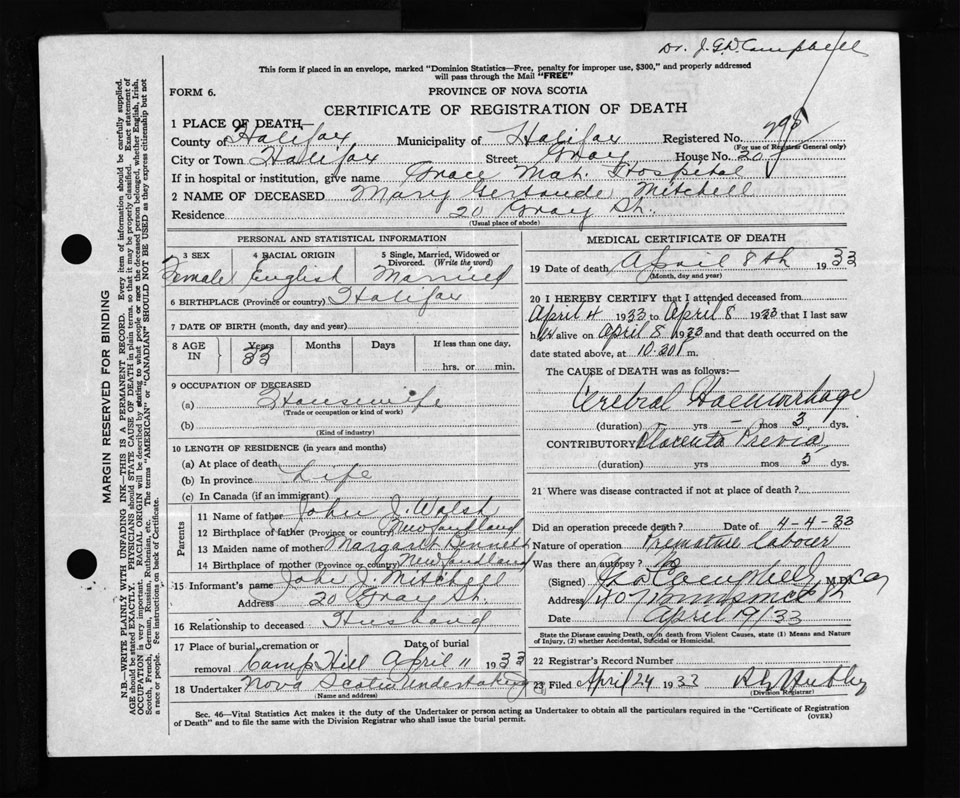 Dr. J. G. D. Campbell
This form if placed in an envelope, marked "Dominion Statistics—Free, penalty for improper use, $300," and properly addressed
will pass through the Mail "FREE"
FORM 6.
PROVINCE OF NOVA SCOTIA
CERTIFICATE OF REGISTRATION OF DEATH
1 PLACE OF DEATH—
County of Halifax Municipality of Halifax Registered No.
(For use of Registrar General only)
City or Town Halifax Street Gray House No. 20
If in hospital or institution, give name Grace Mat. Hospital
2 NAME OF DECEASED Mary Gertrude Mitchell
Residence 20 Gray St.
(Usual place of abode)
PERSONAL AND STATISTICAL INFORMATION
3 SEX 4 RACIAL ORIGIN 5 Single, Married, Widowed or
Divorced. (Write the word)
Female English Married
6 BIRTHPLACE (Province or country) Halifax
7 DATE OF BIRTH (month, day and year)
8 AGE IN Years Months Days If less than one day,
33
hrs. or min.
9 OCCUPATION OF DECEASED
(a) Housewife
(Trade or occupation or kind of work)
(b)
(Kind of industry)
10 LENGTH OF RESIDENCE (in years and months)
(a) At place of death
(b) In province Life
(c) In Canada (if an immigrant)
Parents
11 Name of father John J. Walsh
12 Birthplace of father (Province or country) Newfoundland
13 Maiden name of mother Margaret Bennett
14 Birthplace of mother (Province or country) Newfoundland
15 Informant's name John J. Mitchell
Address 20 Gray St.
16 Relationship to deceased Husband
17 Place of burial, cremation or Date of burial
removal Camp Hill April 11 1933
18 Undertaker Nova Scotia Undertaking
(Name and address)
MEDICAL CERTIFICATE OF DEATH
19 Date of death April 8th 1933
(Month, day and year)
20 I HEREBY CERTIFY that I attended deceased from
April 4 1933 to April 8 1933 that I last saw
her alive on April 8 1933 and that death occurred on the
date stated above, at 10.20 m.
The CAUSE of DEATH was as follows:—
Cerebral Haemorrhage
(duration) yrs — mos 3 dys.
CONTRIBUTORY Placenta Previa
(duration) yrs mos 5 dys.
21 Where was disease contracted if not at place of death?
Did an operation precede death? Date of 4-4-33
Nature of operation Premature labour
Was there an autopsy? no
(Signed) Campbell M.D.
Address 407
Date April 19/33
State the Disease causing Death, or in death from Violent Causes, state (1) Means and Nature
of Injury, (2) whether Accidental, Suicidal or Homicidal.
22 Registrar's Record Number
23 Filed April 24 1933
(Division Registrar)
Sec. 46—Vital Statistics Act makes it the duty of the Undertaker or person acting as Undertaker to obtain all the particulars required in the "Certificate of Registration
of Death" and to file the same with the Division Registrar who shall issue the burial permit. (OVER)
MARGIN RESERVED FOR BINDING
N.B.—WRITE PLAINLY WITH UNFADING INK—THIS IS A PERMANENT RECORD. Every item of information should be carefully supplied.
AGE should be stated EXACTLY. PHYSICIANS should STATE CAUSE OF DEATH in plain terms, so that it may be properly classified. Exact statement of
OCCUPATION is very important. RACIAL ORIGIN will be described by stating to what people or race the deceased person belonged, whether English, Irish,
Scotch, French, German, Russian, Ruthenian, etc. The terms "AMERICAN" or "CANADIAN" SHOULD NOT BE USED as they express citizenship but not
a race or people. See instructions on back of Certificate.